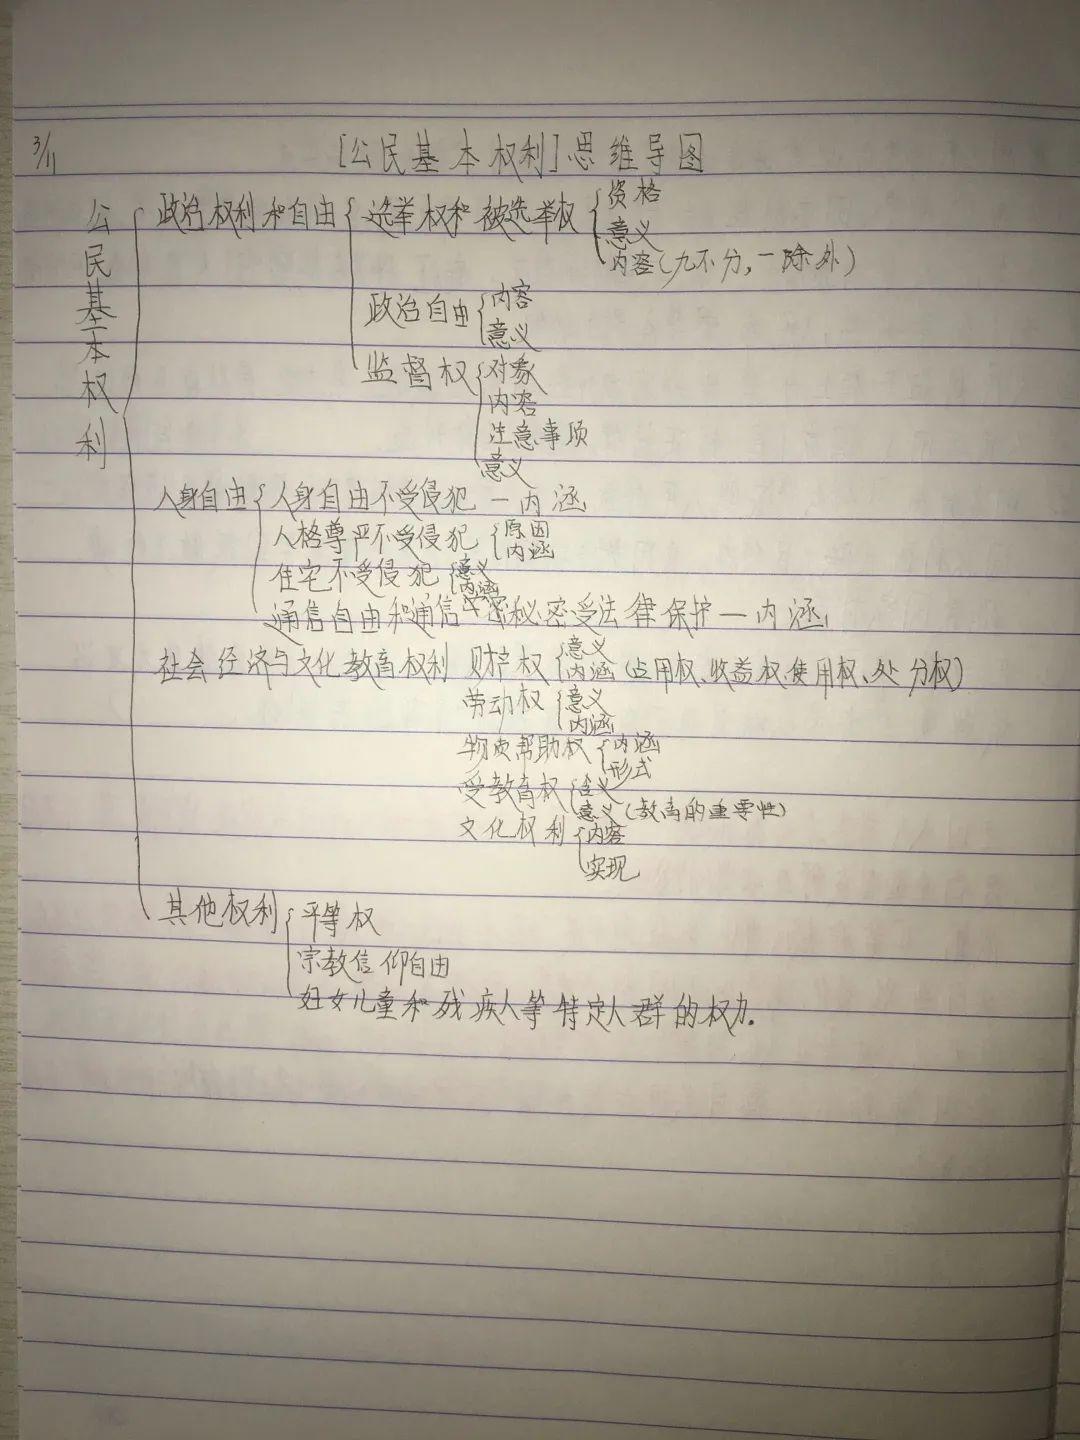 3/11
[公民基本权利]思维导图
公民基本权利
政治权利和自由 选举权和被选举权 资格
意义
内容(九不分,一除外)
政治自由 内容
意义
监督权 对象
内容
注意事项
意义
人身自由 人身自由不受侵犯—内涵
人格尊严不受侵犯 原因
内涵
住宅不受侵犯 意义
内涵
通信自由和通信秘密受法律保护—内涵
社会经济与文化教育权利 财产权 意义
内涵(占用权、收益权、使用权、处分权)
劳动权 意义
内涵
物质帮助权 内涵
形式
受教育权 含义
意义(教育的重要性)
文化权利 内容
实现
其他权利 平等权
宗教信仰自由
妇女儿童和残疾人等特定人群的权力.